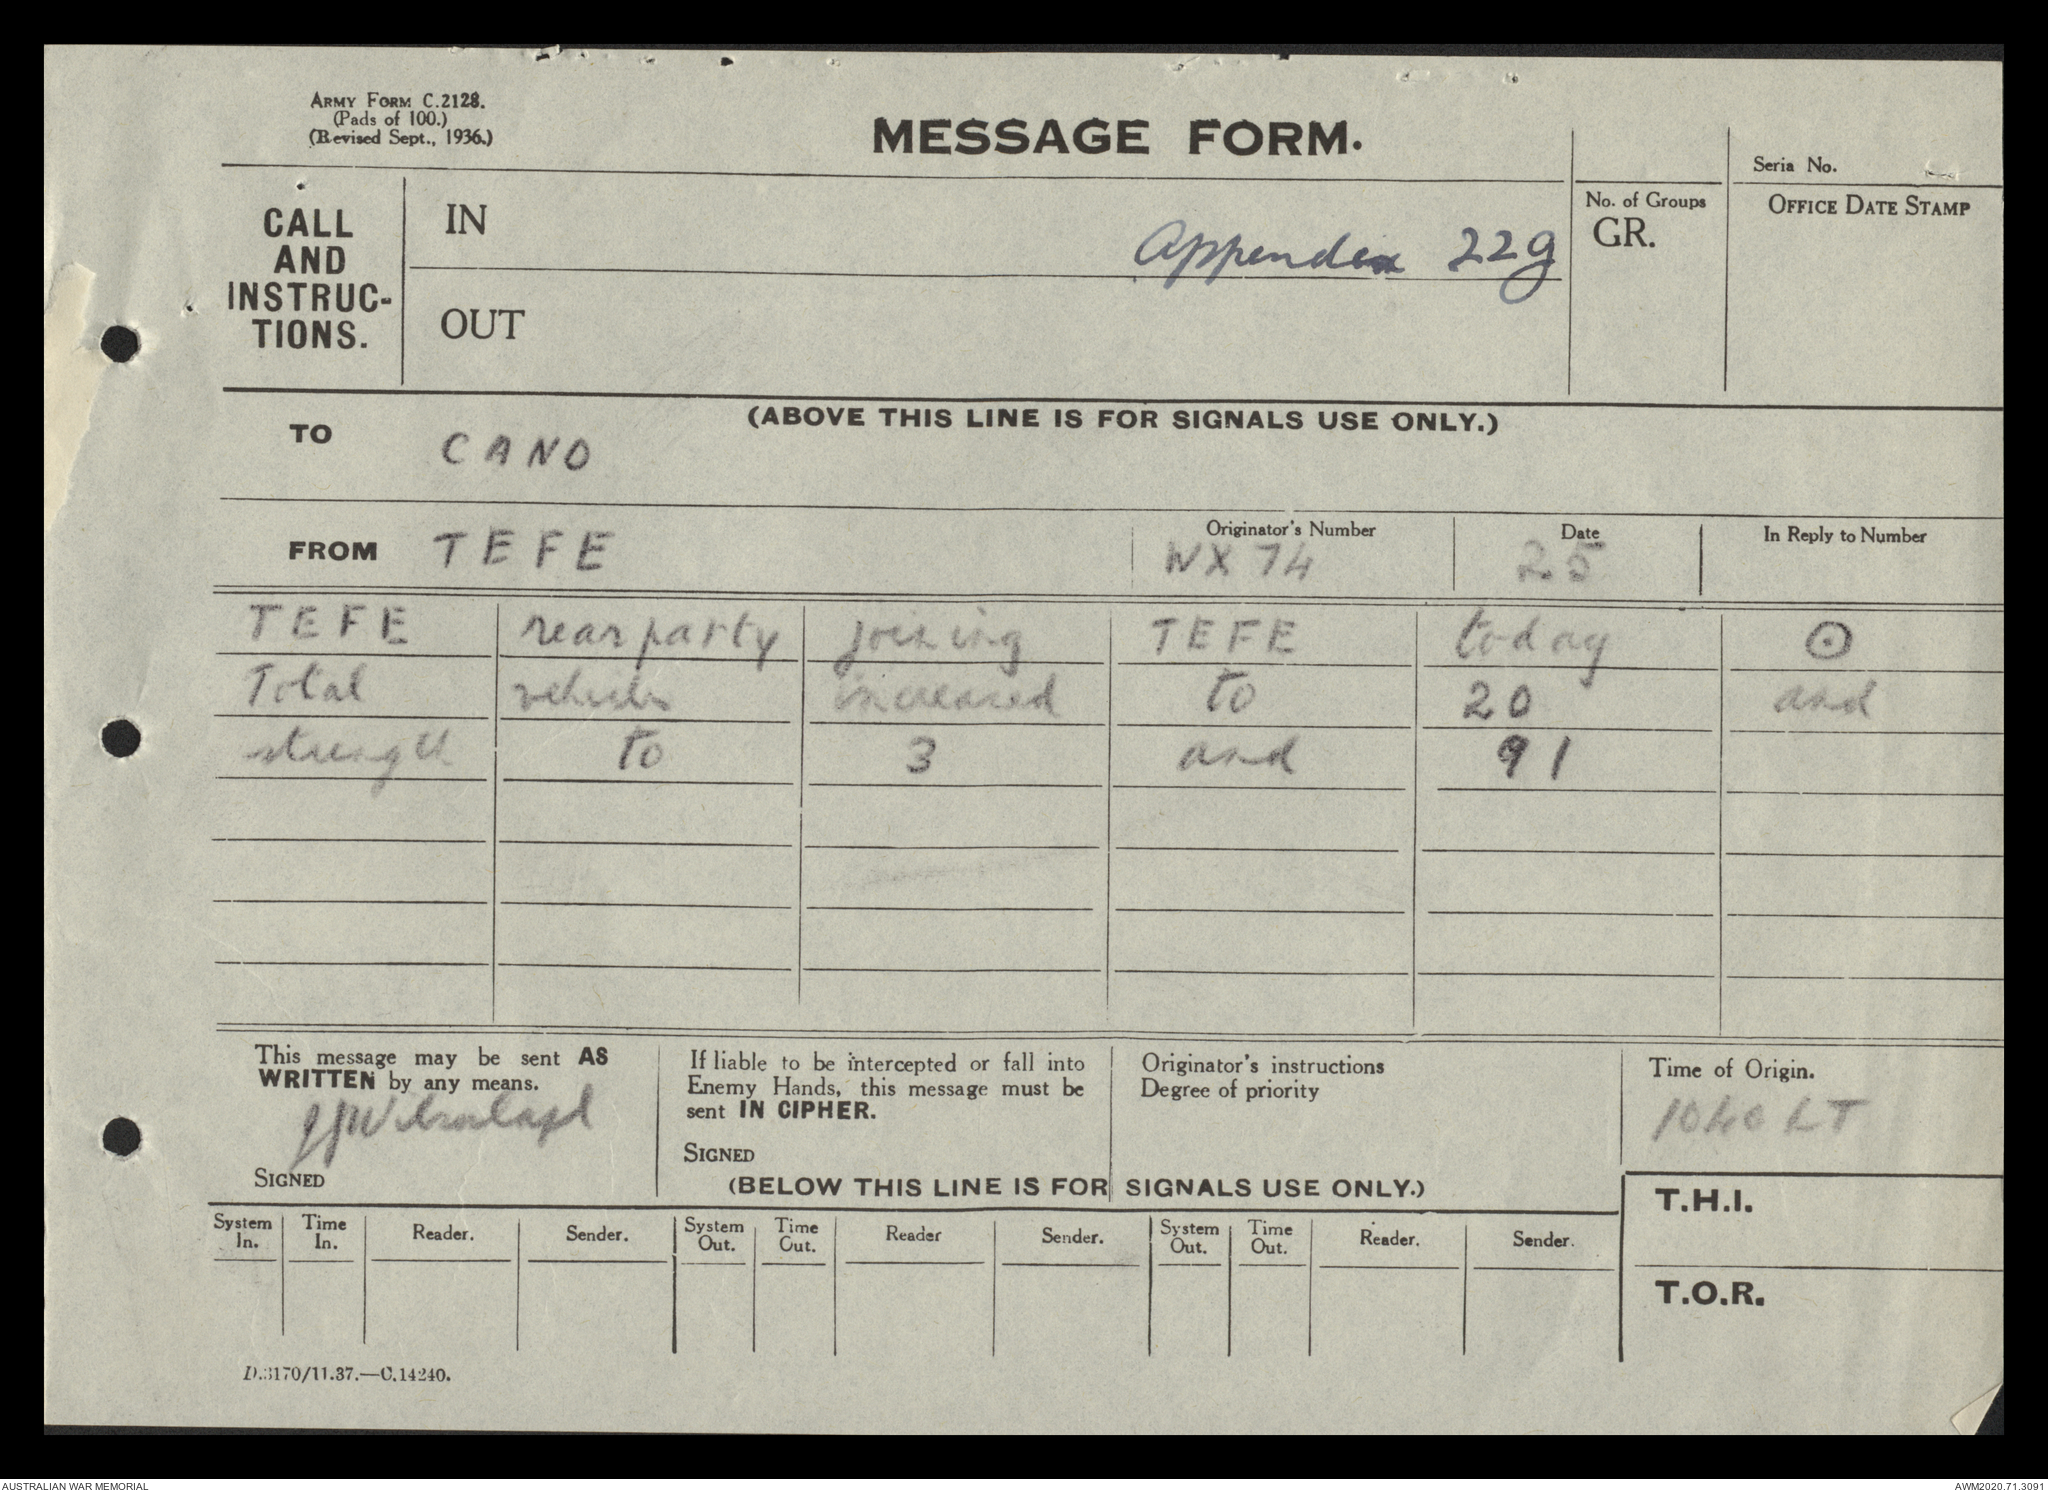 ARMY FORM C.2128.
(Pads of 100.)
(Revised Sept., 1936.)
MESSAGE FORM.
Seria No.
CALL
AND
INSTRUC-
TIONS.
IN
Appendix 22g
No. of Groups
GR.
OFFICE DATE STAMP
OUT
(ABOVE THIS LINE IS FOR SIGNALS USE ONLY.)
TO CANO
FROM TEFE
Originator's Number
WX 74
Date
25
In Reply to Number
TEFE rear party joining TEFE today ⊙
Total vehicles increased to 20 and
strength to 3 and 91
This message may be sent AS
WRITTEN by any means.
SIGNED
If liable to be intercepted or fall into
Enemy Hands, this message must be
sent IN CIPHER.
SIGNED
Originator's instructions
Degree of priority
Time of Origin.
1040 LT
(BELOW THIS LINE IS FOR SIGNALS USE ONLY.)
T.H.I.
System In. Time In. Reader. Sender. System Out. Time Out. Reader Sender. System Out. Time Out. Reader. Sender.
T.O.R.
D.3170/11.37.—C.14240.
AUSTRALIAN WAR MEMORIAL
AWM2020.71.3091